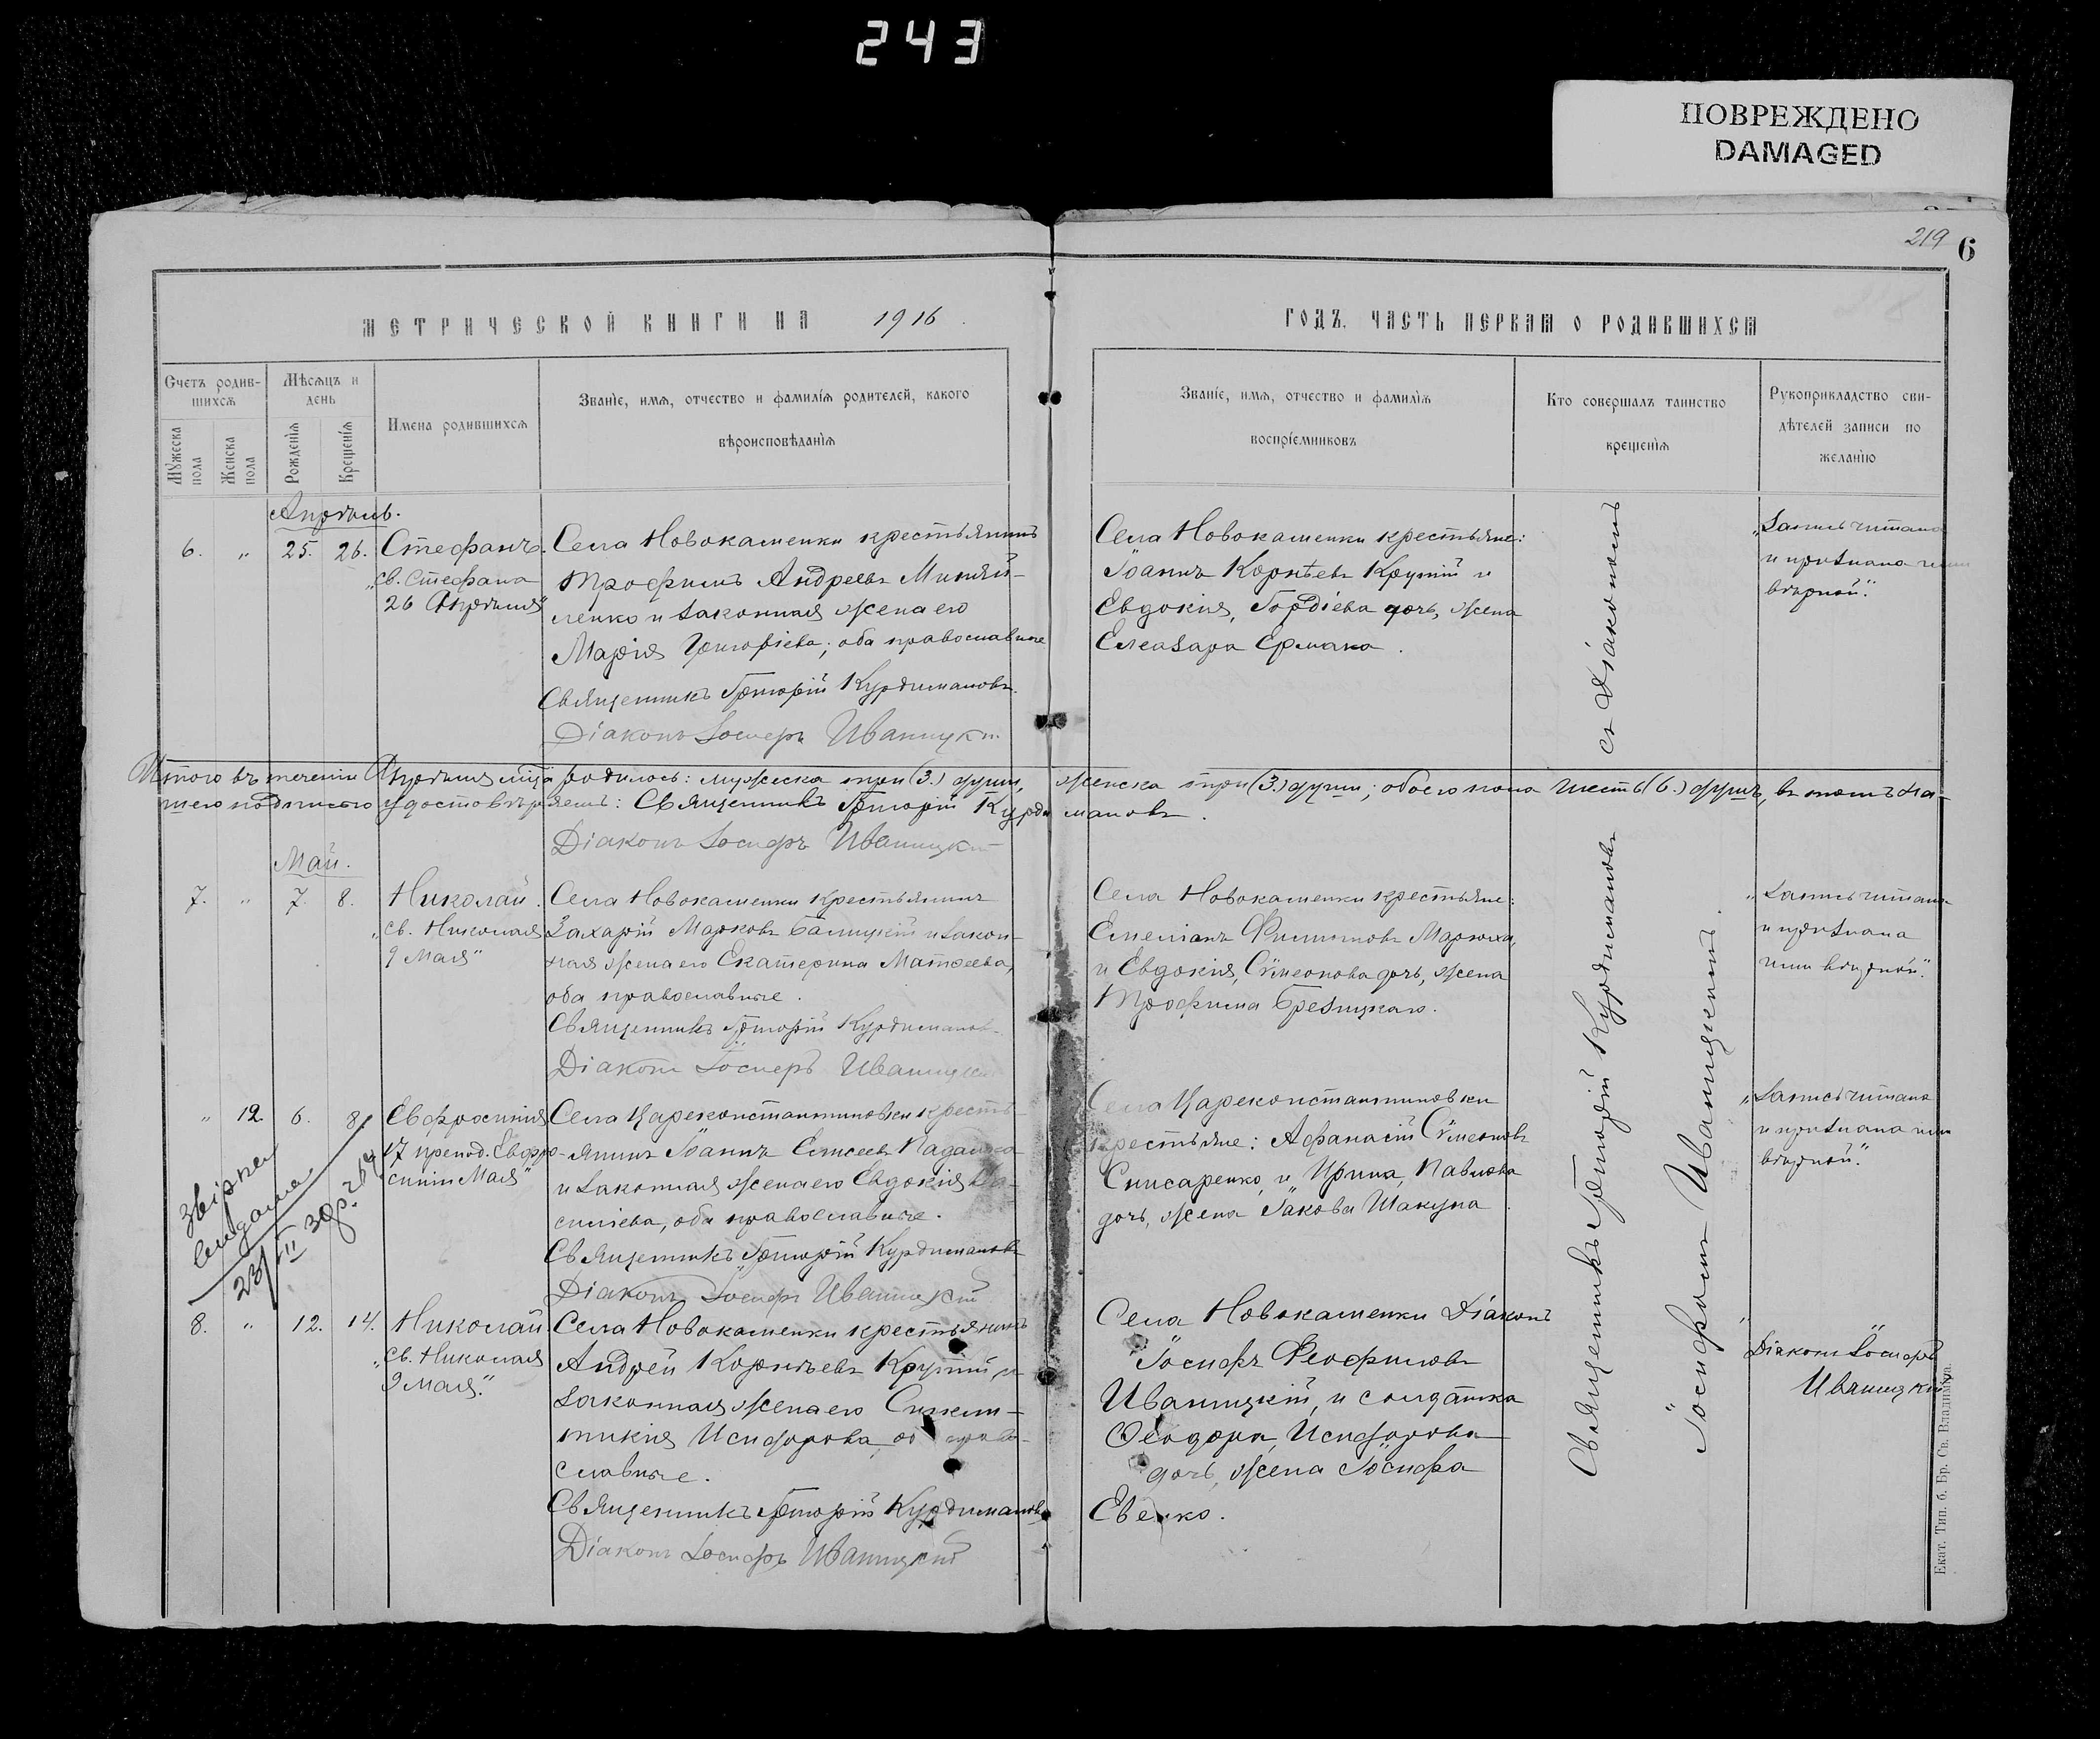 243
ПОВРЕЖДЕНО
DAMAGED
219
6
МЕТРИЧЕСКОЙ КНИГИ НА 1916
ГОДЪ, ЧАСТЬ ПЕРВАЯ О РОДИВШИХСЯ
Счетъ родив-
шихся
Мѣсяцъ и
день
Имена родившихся
Званіе, имя, отчество и фамилія родителей, какого
вѣроисповѣданія
Мужеска пола
Женска пола
Рожденія
Крещенія
Званіе, имя, отчество и фамилія
воспріемниковъ
Кто совершалъ таинство
крещенія
Рукоприкладство сви-
дѣтелей записи по
желанію
Апрѣль.
6. „ 25. 26. Стефанъ.
„св. Стефана
26 Апрѣля“
Села Новокаменки крестьянинъ
Трофимъ Андреевъ Миняй-
ленко и законная жена его
Марія Григоріева; оба православные
Священникъ Григорій Курдимановъ.
Діаконъ Іосифъ Иваницкій
Села Новокаменки крестьяне:
Іоаннъ Корнѣевъ Крупій и
Евдокія, Гордіева дочь, жена
Елеазара Ермака.
„Запись читана
и признана
вѣрной.“
Итого въ теченіи Апрѣля м-ца родилось: мужеска три (3.) души, женска три (3.) души; обоего пола шесть (6.) душъ, въ томъ на-
шею подписью удостовѣряемъ: Священникъ Григорій Курдимановъ.
Діаконъ Іосифъ Иваницкій
Май.
7. „ 7. 8. Николай.
„св. Николая
9 Мая“
Села Новокаменки крестьянинъ
Захарій Марковъ Балицкій и закон-
ная жена его Екатерина Матѳеева,
оба православные.
Священникъ Григорій Курдимановъ
Діаконъ Іосифъ Иваницкій
Села Новокаменки крестьяне:
Емеліанъ Филипповъ Марюха,
и Евдокія, Сѵмеонова дочь, жена
Трофима Брезицкаго.
„Запись читана
и признана
ими вѣрной“.
„ 12. 6. 8. Евфросинія
17 препод. Евфро-
синіи Мая“
Села Цареконстантиновки кресть-
янинъ Іоаннъ Елисеевъ
и законная жена его Евдокія Ва-
силіева, оба православные.
Священникъ Григорій Курдимановъ
Діаконъ Іосифъ Иваницкій
Села Цареконстантиновки
крестьяне: Афанасій Сѵмеоновъ
Списаренко, и Ирина, Павлова
дочь, жена Іакова Шакуна
„Запись читана
и признана ими
вѣрной.“
23/II 39р.
8. „ 12. 14. Николай.
„св. Николая
9 Мая“.
Села Новокаменки крестьянинъ
Андрей Корнѣевъ Крупій и
законная жена его Синкли-
тикія Исидорова, об право-
славные.
Священникъ Григорій Курдимановъ
Діаконъ Іосифъ Иваницкій
Села Новокаменки Діаконъ
Іосифъ Ѳеофиловъ
Иваницкій, и солдатка
Ѳеодора, Исидорова
дочь, жена Іосифа
Евенко.
Діаконъ Іосифъ
Иваницкій
Священникъ Григорій Курдимановъ съ Діакономъ
Іосифомъ Иваницкимъ.
Екат. Тип. б. Бр. Св. Владиміра.